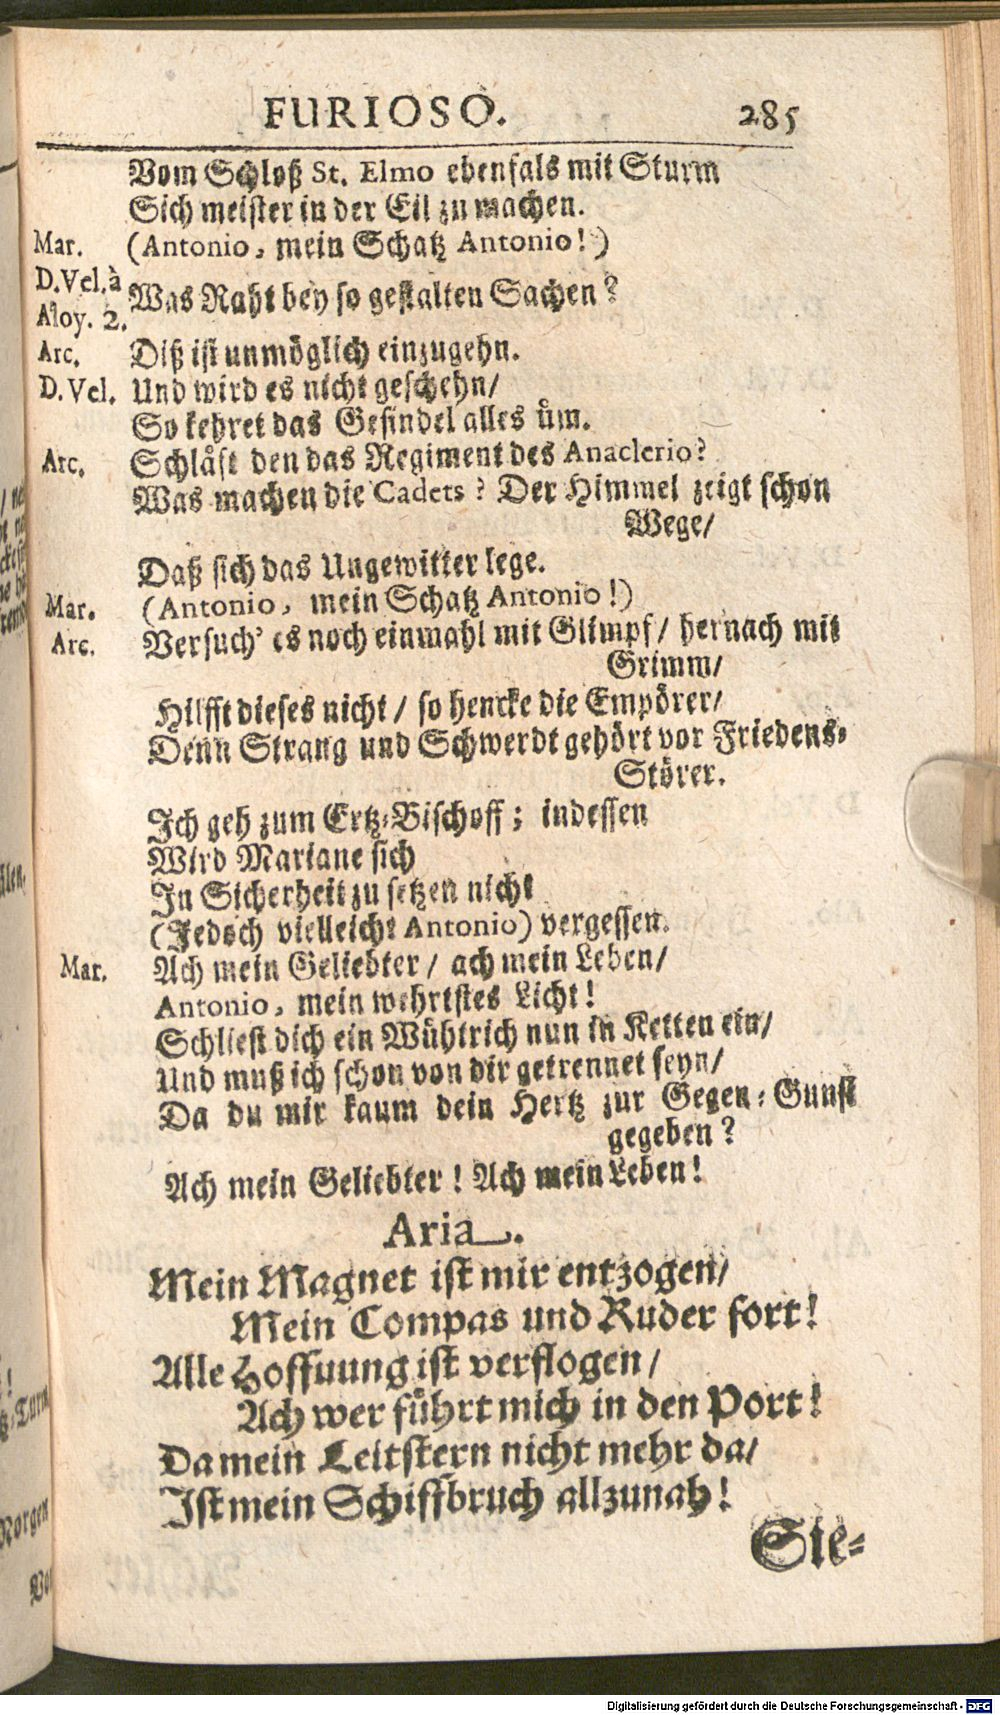 FURIOSO. 285
Vom Schloß St. Elmo ebenfals mit Sturm
Sich meister in der Eil zu machen.
Mar. (Antonio, mein Schatz Antonio!)
D.Vel.à
Aloy. 2. Was Raht bey so gestalten Sachen?
Arc. Diß ist unmöglich einzugehn.
D. Vel. Und wird es nicht geschehn/
So kehret das Gesindel alles üm.
Arc. Schläft den das Regiment des Anaclerio?
Was machen die Cadets? Der Himmel zeigt schon
Wege/
Daß sich das Ungewitter lege.
Mar. (Antonio, mein Schatz Antonio!)
Arc. Versuch' es noch einmahl mit Glimpf/ hernach mit
Grimm/
Hilfft dieses nicht/ so hencke die Empörer/
Denn Strang und Schwerdt gehört vor Friedens-
Störer.
Ich geh zum Ertz-Bischoff; indessen
Wird Mariane sich
In Sicherheit zu setzen nicht
(Jedoch vielleicht Antonio) vergessen.
Mar. Ach mein Geliebter/ ach mein Leben/
Antonio, mein wehrtstes Licht!
Schliest dich ein Wühtrich nun in Ketten ein/
Und muß ich schon von dir getrennet seyn/
Da du mir kaum dein Hertz zur Gegen-Gunst
gegeben?
Ach mein Geliebter! Ach mein Leben!
Aria.
Mein Magnet ist mir entzogen/
Mein Compas und Ruder fort!
Alle Hoffuung ist verflogen/
Ach wer führt mich in den Port!
Da mein Leitstern nicht mehr da/
Ist mein Schiffbruch allzunah!
Sie-
Digitalisierung gefördert durch die Deutsche Forschungsgemeinschaft - DFG